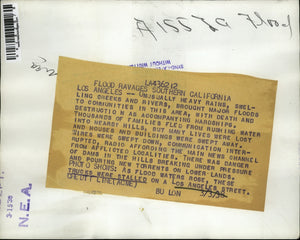 A1552a Flood
FLOOD RAVAGES SOUTHERN CALIFORNIA LA476212
LOS ANGELES -- UNUSUALLY HEAVY RAINS, SWEL-
LING CREEKS AND RIVERS, BROUGHT MAJOR FLOODS
TO COMMUNITIES IN THIS AREA, WITH DEATH AND
DESTRUCTION AS ACCOMPANYING HARDSHIPS.
THOUSANDS OF FAMILIES FLED FROM RUSHING WATER
INTO NEARBY HILLS, BUT MANY LIVES WERE LOST
AND HOUSES AND BUILDINGS WERE SWEPT AWAY.
SINCE WIRES SWEPT DOWN, COMMUNICATION INTER-
RUPTED, RADIO AFFORDING THE MAIN NEWS CHANNEL
FROM AFFLICTED LOCALITIES. THERE WAS DANGER
OF DAMS IN THE HILLS BREAKING UNDER PRESSURE
AND POURING NEW TORRENTS ON LOWER LANDS.
PHOTO SHOWS: AS FLOOD WATERS ROSE, THESE
TRUCKS WERE STALLED ON A LOS ANGELES STREET.
CREDIT LINE (ACME) BU LON 3/3/38
N.E.A.